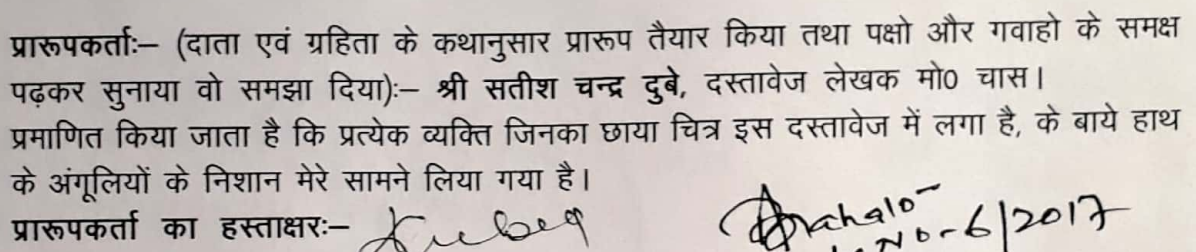 प्रारूपकर्ताः– (दाता एवं ग्रहिता के कथानुसार प्रारूप तैयार किया तथा पक्षो और गवाहो के समक्ष
पढ़कर सुनाया वो समझा दिया):– श्री सतीश चन्द्र दुबे, दस्तावेज लेखक मो0 चास।
प्रमाणित किया जाता है कि प्रत्येक व्यक्ति जिनका छाया चित्र इस दस्तावेज में लगा है, के बाये हाथ
के अंगूलियों के निशान मेरे सामने लिया गया है।
प्रारूपकर्ता का हस्ताक्षरः–
No-6/2017